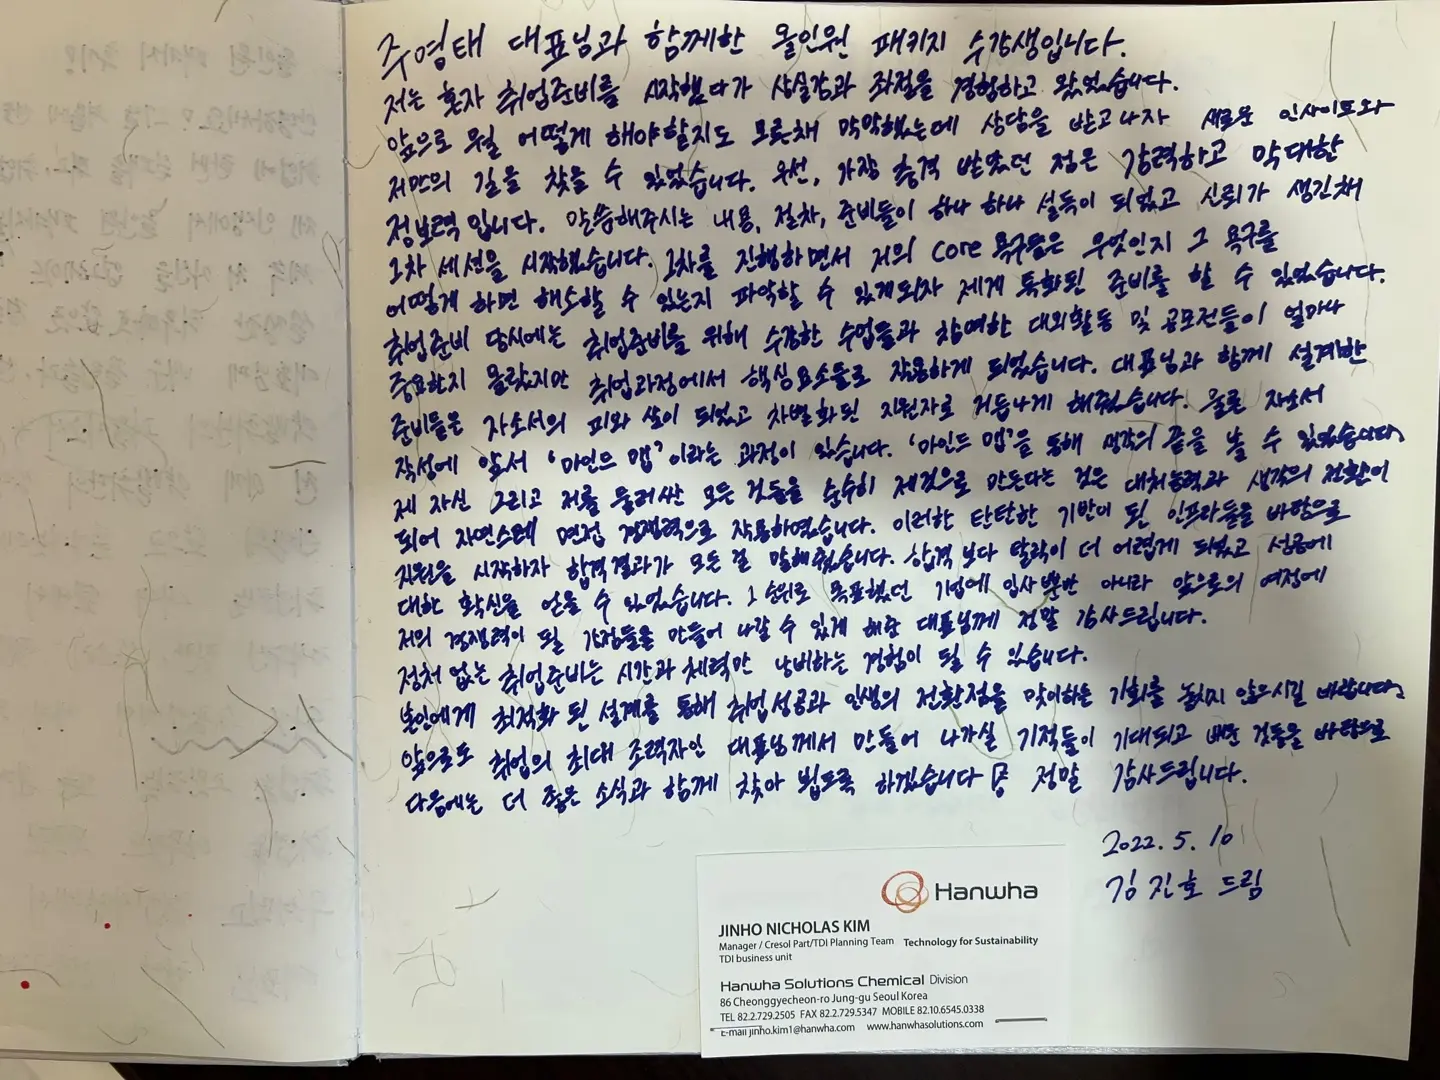 주영태 대표님과 함께한 올인원 패키지 수강생입니다.
저는 혼자 취업준비를 시작했다가 상실감과 좌절을 경험하고 왔었습니다.
앞으로 뭘 어떻게 해야할지도 모른채 막막했는데 상담을 받고나자 새로운 인사이트와
저만의 길을 찾을 수 있었습니다. 우선, 가장 충격 받았던 점은 강력하고 막대한
정보력입니다. 말씀해주시는 내용, 절차, 준비들이 하나 하나 설득이 되었고 신뢰가 생긴채
1차 세션을 시작했습니다. 1차를 진행하면서 저의 core 욕구들은 무엇인지 그 욕구를
어떻게 하면 해소할 수 있는지 파악할 수 있게되자 제게 특화된 준비를 할 수 있었습니다.
취업준비 당시에는 취업준비를 위해 수강한 수업들과 참여한 대외활동 및 공모전들이 얼마나
중요한지 몰랐지만 취업과정에서 핵심요소들로 작용하게 되었습니다. 대표님과 함께 설계한
준비들은 자소서의 피와 살이 되었고 차별화된 지원자로 거듭나게 해줬습니다. 물론 자소서
작성에 앞서 '마인드 맵'이라는 과정이 있습니다. '마인드 맵'을 통해 생각의 끝을 낼 수 있었습니다.
제 자신 그리고 저를 둘러싼 모든 것들을 순수히 제것으로 만든다는 것은 대처능력과 생각의 전환이
되어 자연스레 면접 경쟁력으로 작용하였습니다. 이러한 탄탄한 기반이 된 인프라들을 바탕으로
지원을 시작하자 합격결과가 모든 걸 말해줬습니다. 합격보다 탈락이 더 어렵게 되었고 성공에
대한 확신을 얻을 수 있었습니다. 1순위로 목표했던 기업에 입사뿐만 아니라 앞으로의 여정에
저의 경쟁력이 될 강점들을 만들어 나갈 수 있게 해준 대표님께 정말 감사드립니다.
정처 없는 취업준비는 시간과 체력만 낭비하는 경험이 될 수 있습니다.
본인에게 최적화 된 설계를 통해 취업성공과 인생의 전환점을 맞이하는 기회를 놓치지 않으시길 바랍니다.
앞으로도 취업의 최대 조력자인 대표님께서 만들어 나가실 기적들이 기대되고 배운 것들을 바탕으로
다음에는 더 좋은 소식과 함께 찾아 뵙도록 하겠습니다 정말 감사드립니다.
2022. 5. 10
김진호 드림
Hanwha
JINHO NICHOLAS KIM
Manager / Cresol Part/TDI Planning Team Technology for Sustainability
TDI business unit
Hanwha Solutions Chemical Division
86 Cheonggyecheon-ro Jung-gu Seoul Korea
TEL 82.2.729.2505 FAX 82.2.729.5347 MOBILE 82.10.6545.0338
E-mail jinho.kim1@hanwha.com www.hanwhasolutions.com